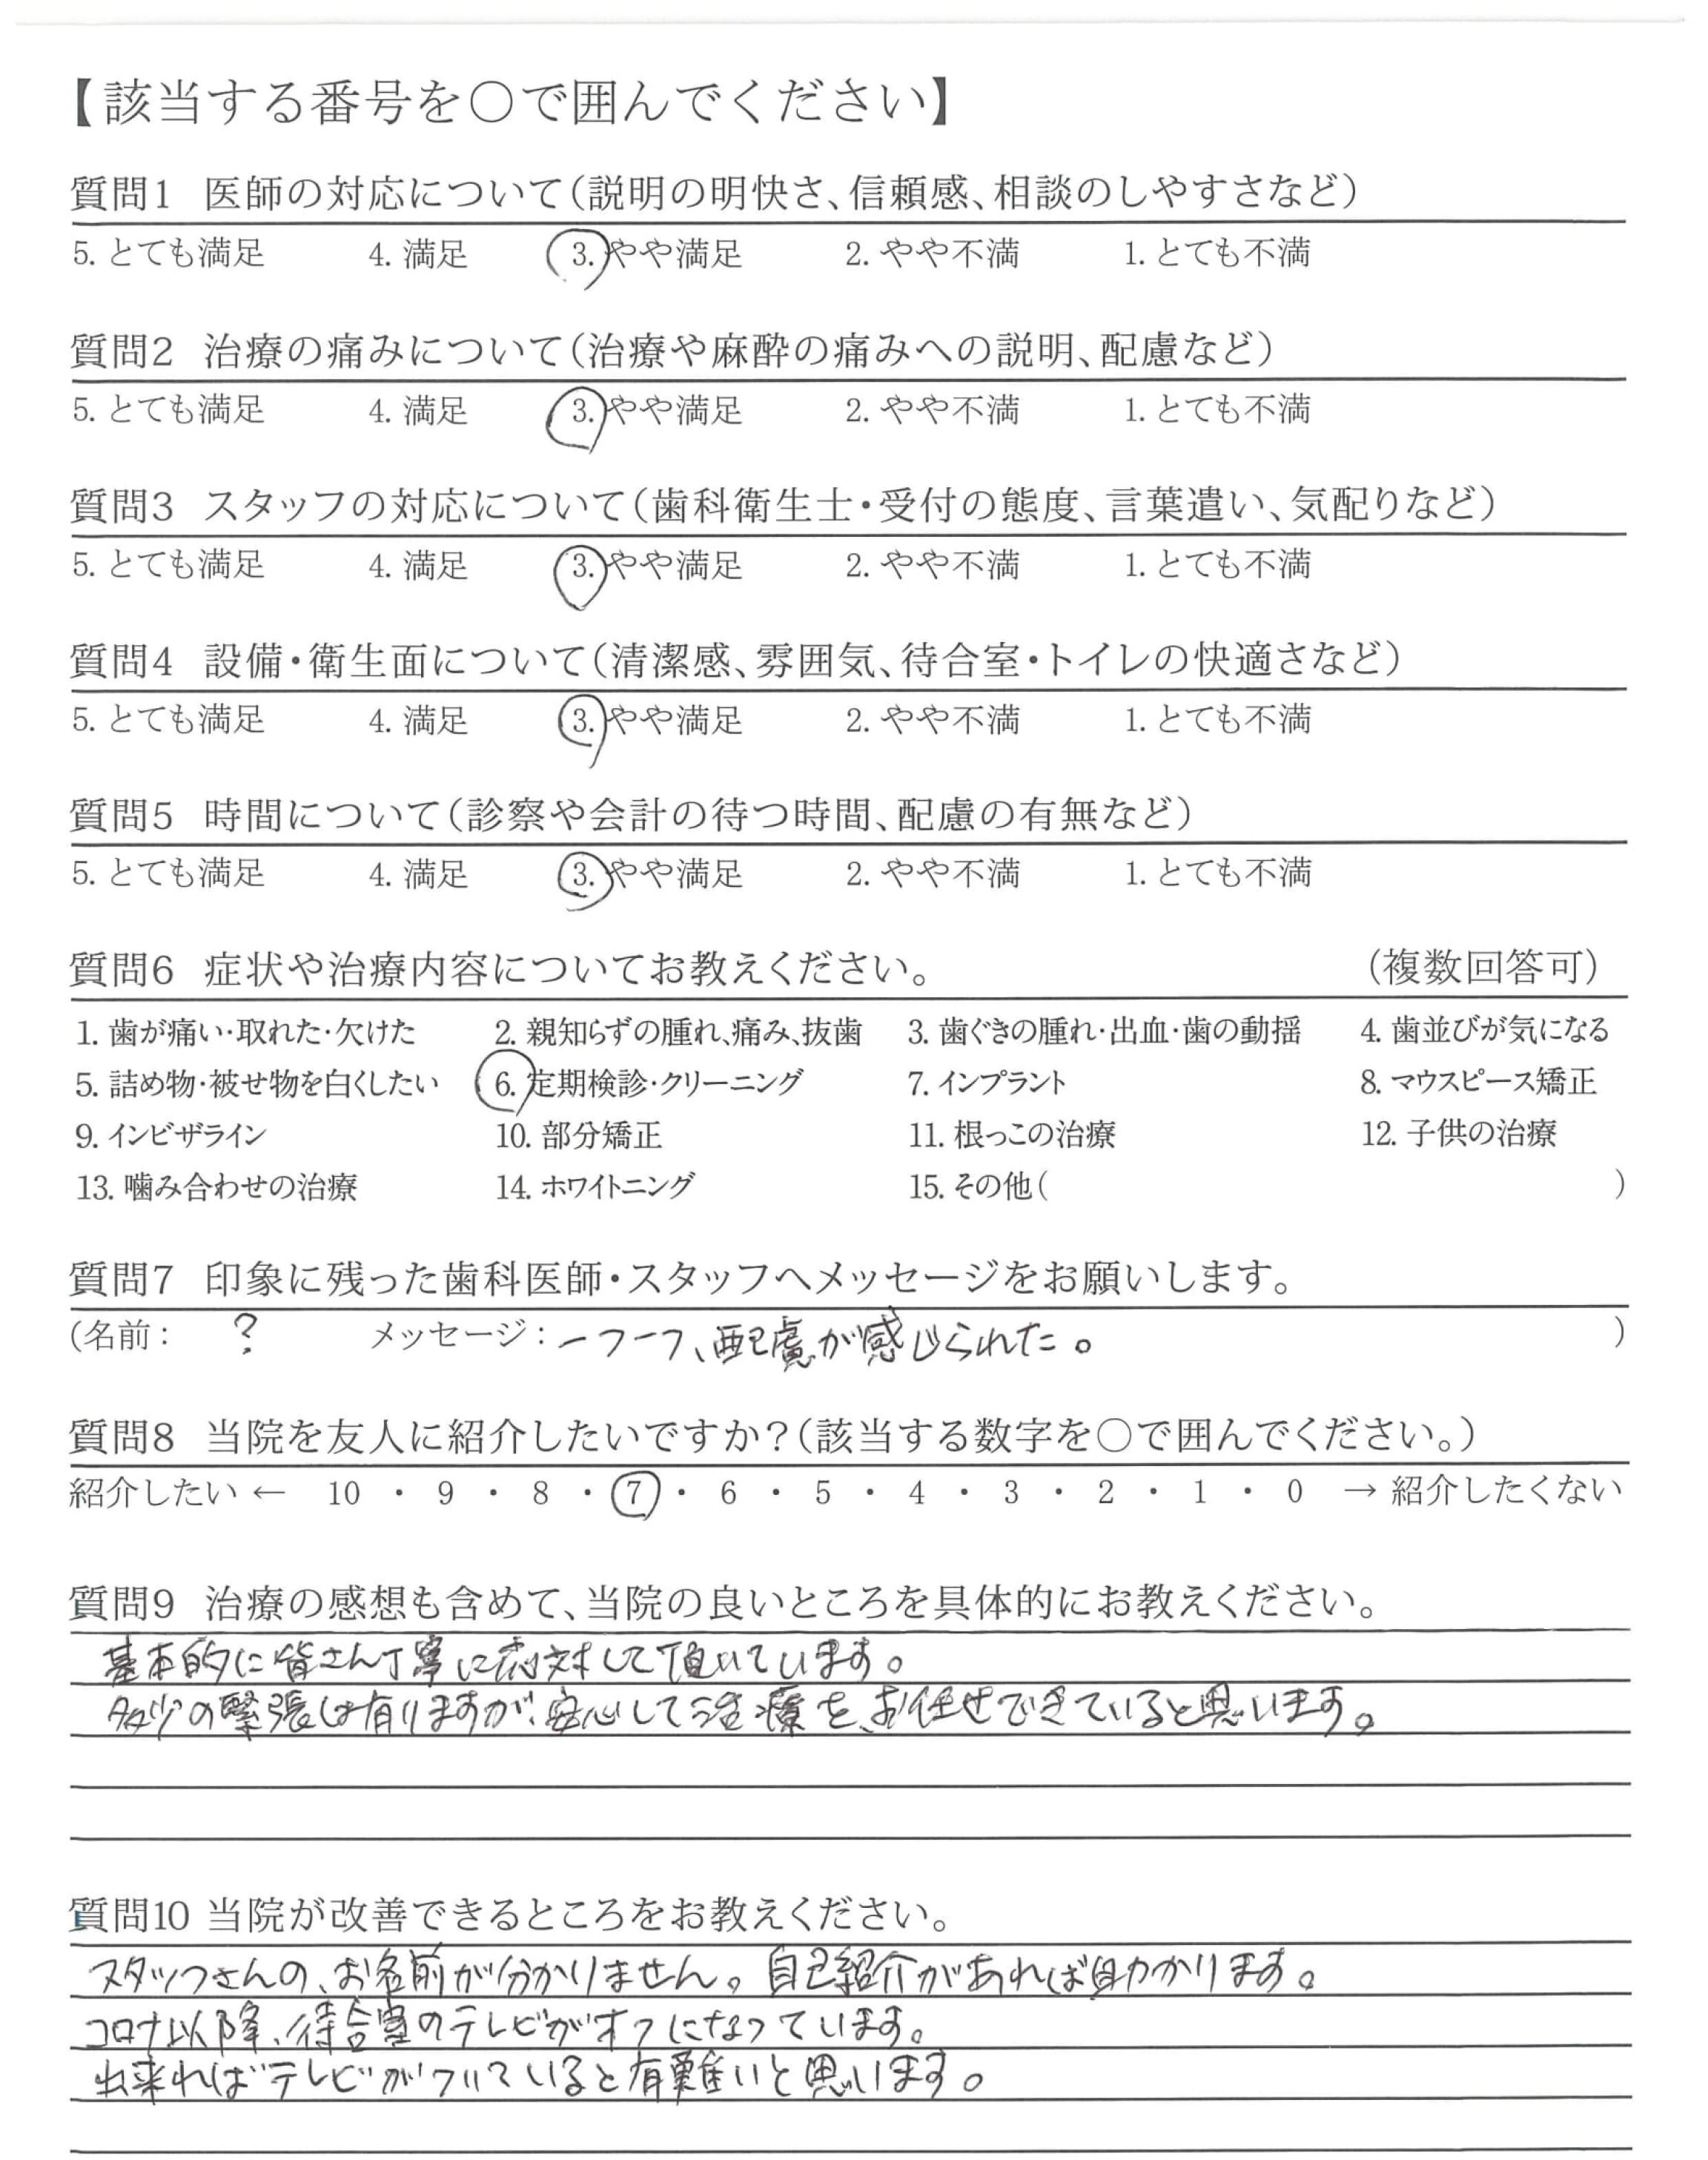 【該当する番号を○で囲んでください】
質問1 医師の対応について(説明の明快さ、信頼感、相談のしやすさなど)
5. とても満足 4. 満足 3. やや満足 2. やや不満 1. とても不満
質問2 治療の痛みについて(治療や麻酔の痛みへの説明、配慮など)
5. とても満足 4. 満足 3. やや満足 2. やや不満 1. とても不満
質問3 スタッフの対応について(歯科衛生士・受付の態度、言葉遣い、気配りなど)
5. とても満足 4. 満足 3. やや満足 2. やや不満 1. とても不満
質問4 設備・衛生面について(清潔感、雰囲気、待合室・トイレの快適さなど)
5. とても満足 4. 満足 3. やや満足 2. やや不満 1. とても不満
質問5 時間について(診察や会計の待つ時間、配慮の有無など)
5. とても満足 4. 満足 3. やや満足 2. やや不満 1. とても不満
質問6 症状や治療内容についてお教えください。 (複数回答可)
1. 歯が痛い・取れた・欠けた 2. 親知らずの腫れ、痛み、抜歯 3. 歯ぐきの腫れ・出血・歯の動揺 4. 歯並びが気になる
5. 詰め物・被せ物を白くしたい 6. 定期検診・クリーニング 7. インプラント 8. マウスピース矯正
9. インビザライン 10. 部分矯正 11. 根っこの治療 12. 子供の治療
13. 噛み合わせの治療 14. ホワイトニング 15. その他( )
質問7 印象に残った歯科医師・スタッフへメッセージをお願いします。
(名前: ? メッセージ: 一つ一つ、配慮が感じられた。 )
質問8 当院を友人に紹介したいですか?(該当する数字を○で囲んでください。)
紹介したい ← 10 ・ 9 ・ 8 ・ 7 ・ 6 ・ 5 ・ 4 ・ 3 ・ 2 ・ 1 ・ 0 → 紹介したくない
質問9 治療の感想も含めて、当院の良いところを具体的にお教えください。
基本的に皆さん丁寧に応対して頂いています。
多少の緊張は有りますが、安心して治療を、お任せできていると思います。
質問10 当院が改善できるところをお教えください。
スタッフさんの、お名前が分かりません。自己紹介があれば助かります。
コロナ以降、待合室のテレビがオフになっています。
出来ればテレビがついていると有難いと思います。